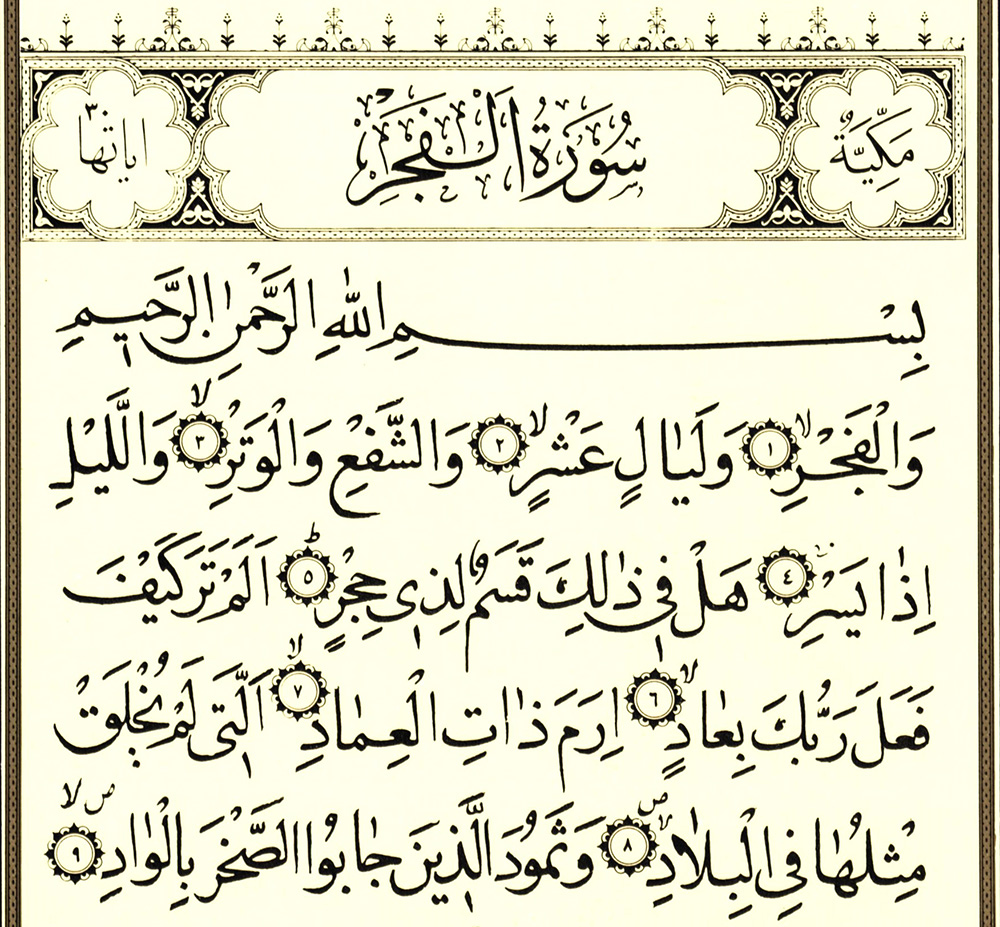 مَكِّيَّةٌ
سُورَةُ الْفَجْرِ
اياتها ٣٠
بِسْمِ اللّٰهِ الرَّحْمٰنِ الرَّحيمِ
وَالْفَجْرِۙ ١ وَلَيٰالٍ عَشْرٍۙ ٢ وَالشَّفْعِ وَالْوَتْرِۙ ٣ وَالَّليْلِ
اِذٰا يَسْرِ ٤ هَلْ فى ذٰلِكَ قَسَمٌ لِذى حِجْرٍؕ ٥ اَلَمْ تَرَ كَيْفَ
فَعَلَ رَبُّكَ بِعٰادٍۙ ٦ اِرَمَ ذٰاتِ الْعِمٰادِۙ ٧ اَلَّتى لَمْ يُخْلَقْ
مِثْلُهٰا فِى الْبِلٰادِۙص ٨ وَثَمُودَ الَّذينَ جٰابُوا الصَّخْرَ بِالْوٰادِ ٩ ص لا